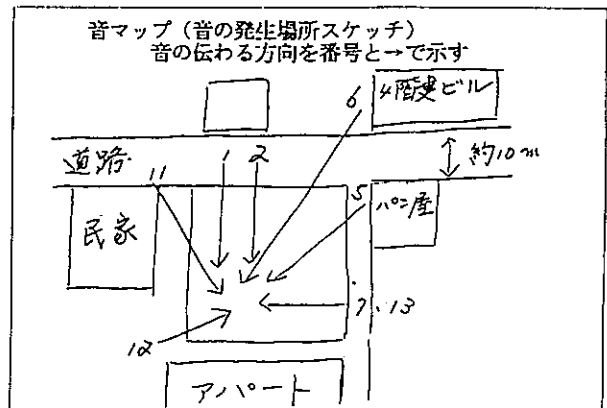 音マップ（音の発生場所スケッチ）
音の伝わる方向を番号と→で示す
6 4階建ビル
道路 11 1 2 約10m
民家 5 パン屋
7.13
12
アパート